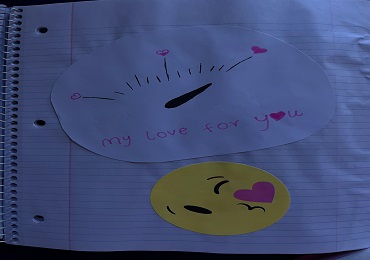 my love for you